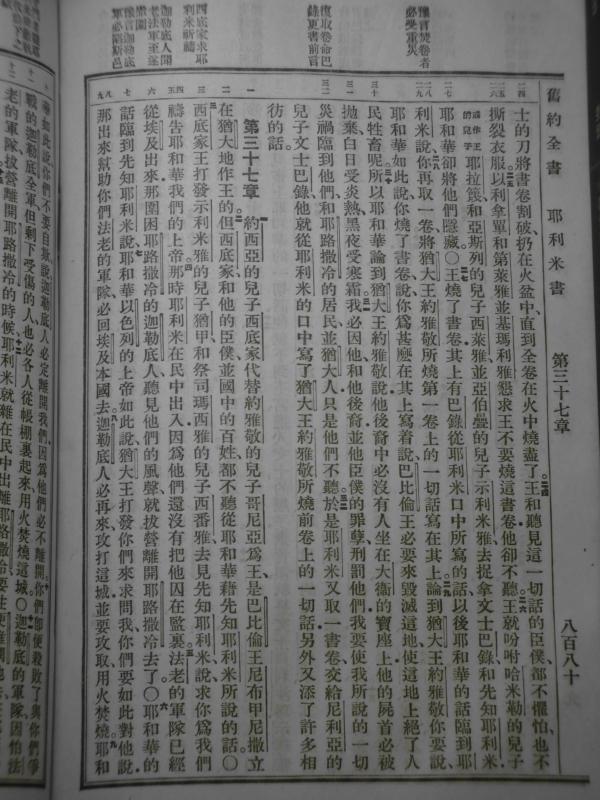 舊約全書 耶利米書 第三十七章 八百八十
士的刀將書卷割破扔在火盆中直到全卷在火中燒盡了王和聽見這一切話的臣僕都不懼怕也不
撕裂衣服以利拿單和第萊雅並基瑪利雅懇求王不要燒這書卷他卻不聽王就吩咐哈米勒的兒子
或作王的兒子耶拉篾和亞斯列的兒子西萊雅並亞伯疊的兒子示利米雅去捉拿文士巴錄和先知耶利米
耶和華卻將他們隱藏〇王燒了書卷其上有巴錄從耶利米口中所寫的話以後耶和華的話臨到耶
利米說你再取一卷將猶大王約雅敬所燒第一卷上的一切話寫在其上論到猶大王約雅敬你要說
耶和華如此說你燒了書卷說你爲甚麼在其上寫着說巴比倫王必要來毀滅這地使這地上絕了人
民牲畜呢所以耶和華論到猶大王約雅敬說他後裔中必沒有人坐在大衛的寶座上他的屍首必被
拋棄白日受炎熱黑夜受寒霜我必因他和他後裔並他臣僕的罪孽刑罰他們我要使我所說的一切
災禍臨到他們和耶路撒冷的居民並猶大人只是他們不聽於是耶利米又取一書卷交給尼利亞的
兒子文士巴錄他就從耶利米的口中寫了猶大王約雅敬所燒前卷上的一切話另外又添了許多相
彷的話
第三十七章 約西亞的兒子西底家代替約雅敬的兒子哥尼亞爲王是巴比倫王尼布甲尼撒立
在猶大地作王的但西底家和他的臣僕並國中的百姓都不聽從耶和華藉先知耶利米所說的話〇
西底家王打發示利米雅的兒子猶甲和祭司瑪西雅的兒子西番雅去見先知耶利米說求你爲我們
禱告耶和華我們的上帝那時耶利米在民中出入因爲他們還沒有把他囚在監裏法老的軍隊已經
從埃及出來那圍困耶路撒冷的迦勒底人聽見他們的風聲就拔營離開耶路撒冷去了〇耶和華的
話臨到先知耶利米說耶和華以色列的上帝如此說猶大王打發你們來求問我你們要如此對他說
那出來幫助你們法老的軍隊必回埃及本國去迦勒底人必再來攻打這城並要攻取用火焚燒耶和
華如此說你們不要自欺說迦勒底人必定離開我們因爲他們必不離開你們即便殺敗了與你們爭
戰的迦勒底全軍但剩下受傷的人也必各人從帳棚裏起來用火焚燒這城〇迦勒底的軍隊因怕法
老的軍隊拔營離開耶路撒冷的時候耶利米就雜在民中出離耶路撒冷要往便雅憫地去
豫言焚卷者
必受重災
復取卷命巴
錄更書前言
西底家求耶
利米祈禱
迦勒底人聞
老法軍至遂
豫言迦勒底
軍必陷斯邑